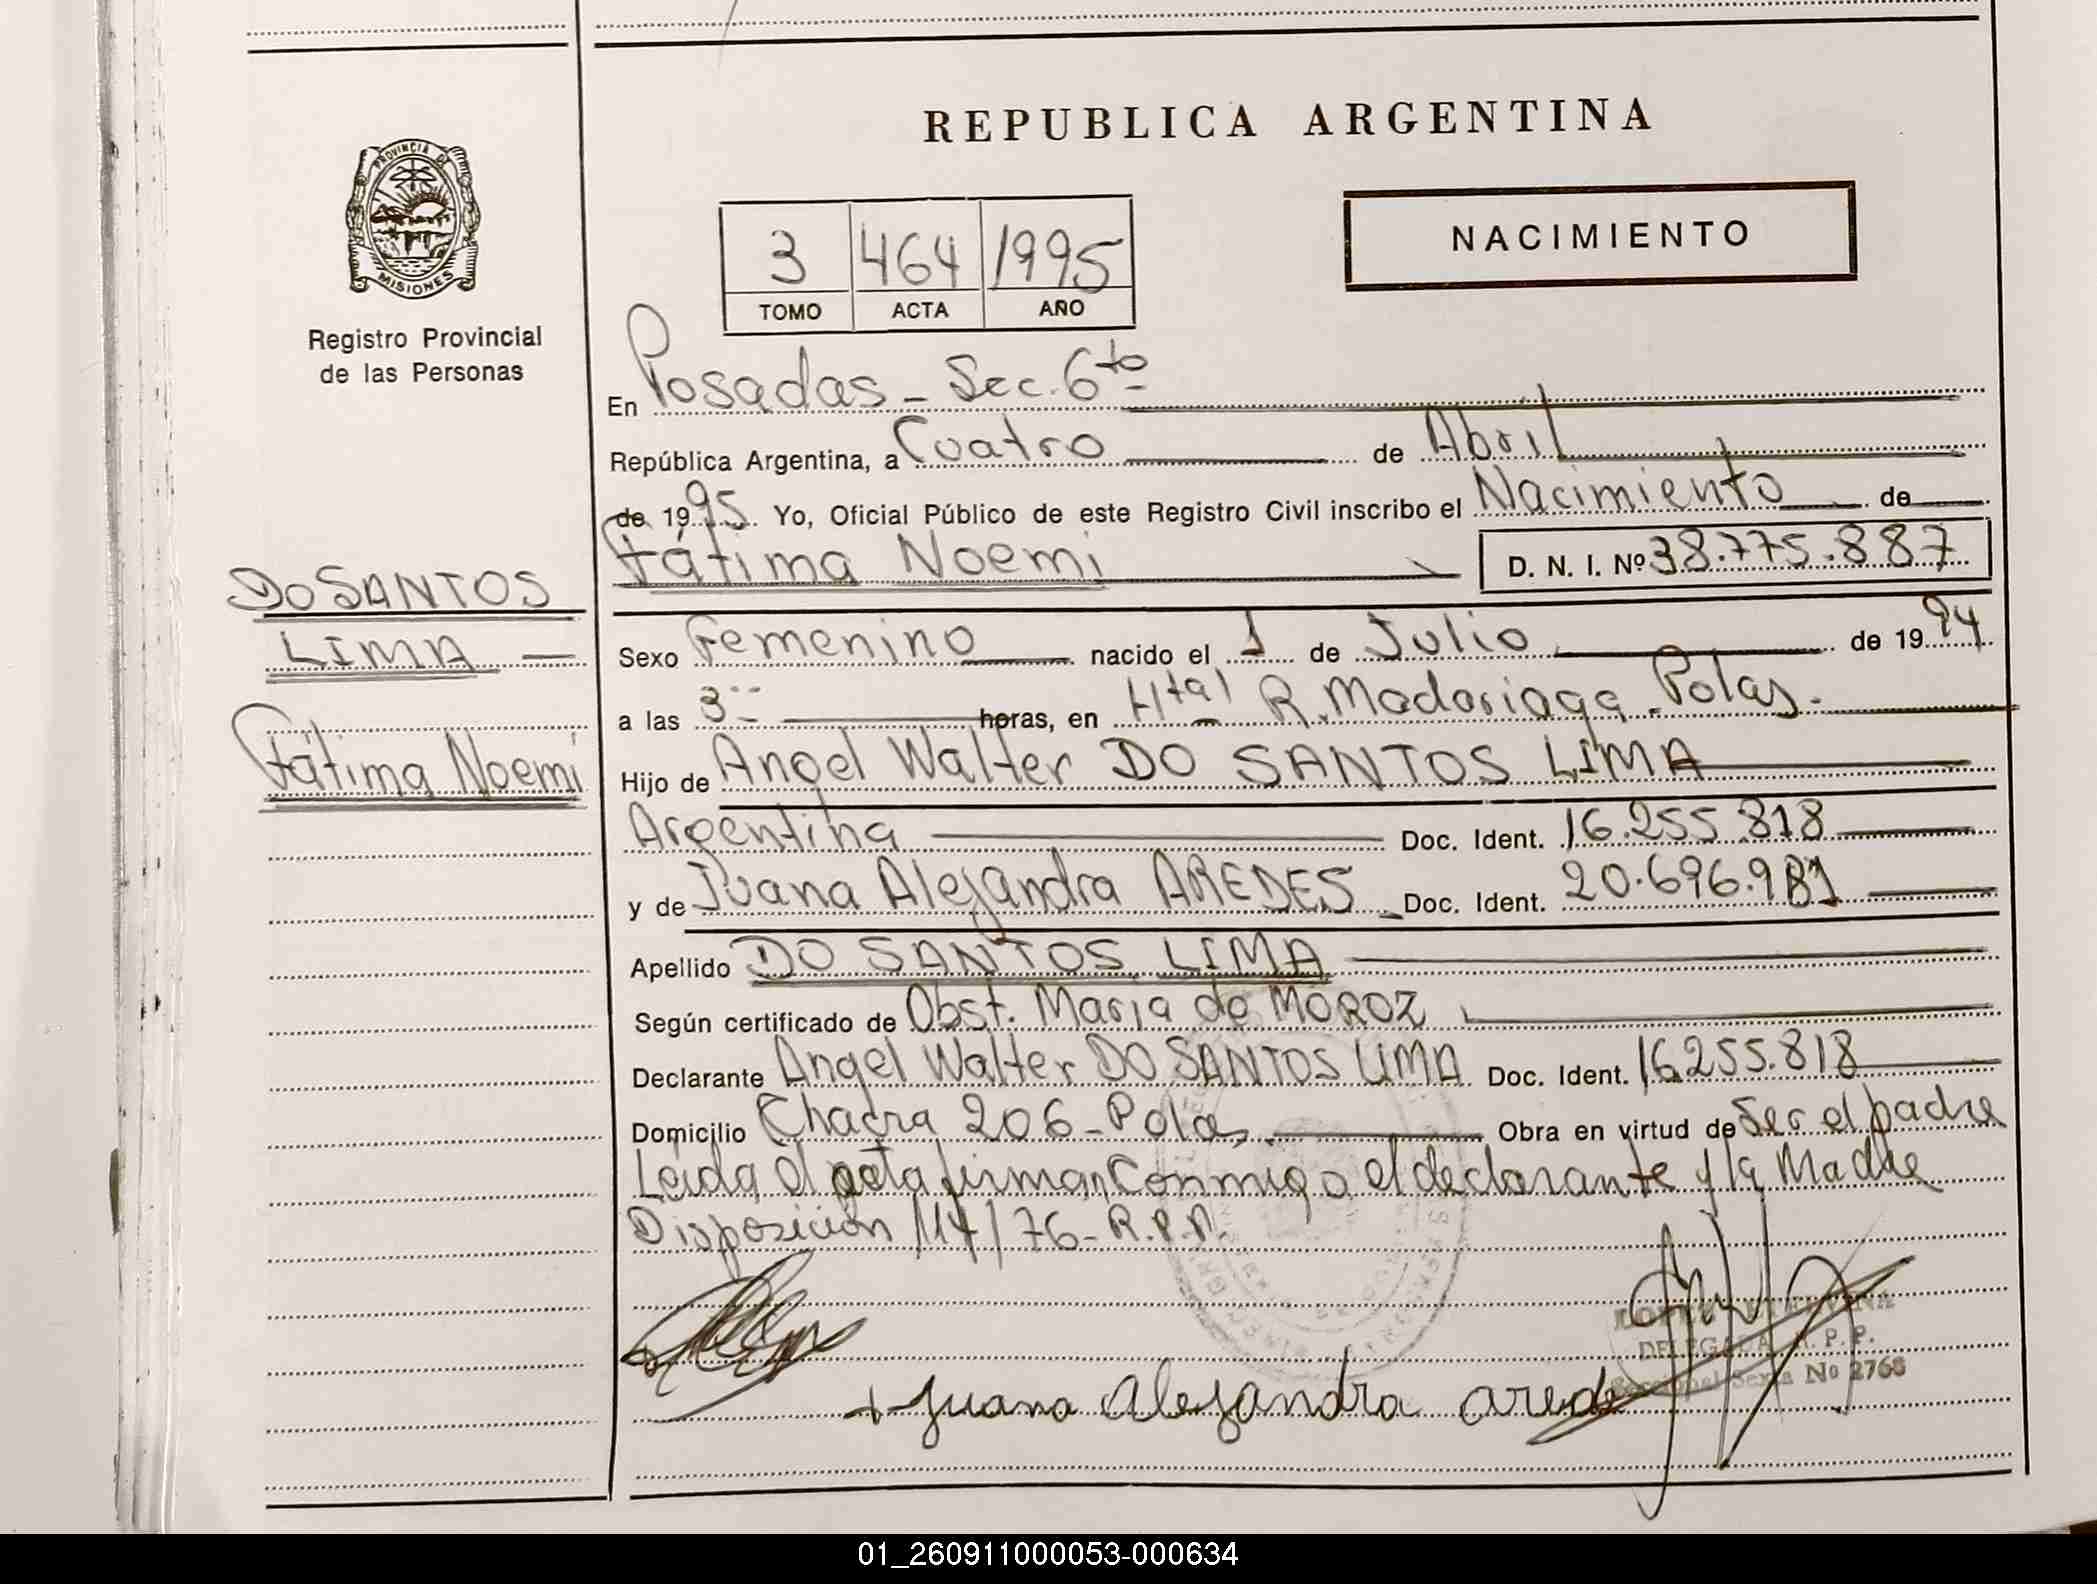 REPUBLICA ARGENTINA
PROVINCIA DE
MISIONES
Registro Provincial
de las Personas
NACIMIENTO
3 464 1995
TOMO ACTA AÑO
En Posadas - Sec. 6to
República Argentina, a Cuatro de Abril
de 1995. Yo, Oficial Público de este Registro Civil inscribo el Nacimiento de
Fátima Noemi D. N. I. Nº 38.775.887
DO SANTOS
LIMA
Fátima Noemi
Sexo Femenino nacido el 1 de Julio de 1994
a las 3 horas, en Htal R. Madariaga - Pdas.
Hijo de Angel Walter DO SANTOS LIMA
Argentina Doc. Ident. 16.255.818
y de Juana Alejandra AREDES - Doc. Ident. 20.696.981
Apellido DO SANTOS LIMA
Según certificado de Obst. Maria de MOROZ
Declarante Angel Walter DO SANTOS LIMA Doc. Ident. 16.255.818
Domicilio Chacra 206 - Pdas, Obra en virtud de Ser el padre
Leida el acta firman Conmigo el declarante y la Madre
Disposición 114/76 - R.P.P.
DELEGADA R. P. P.
Seccional Sexta Nº 2768
Juana Alejandra Aredes
01_260911000053-000634